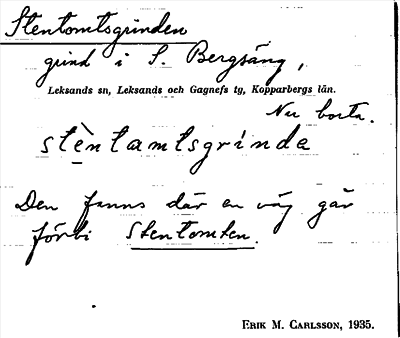 Stentomtsgrinden
grind i S. Bergsäng,
Leksands sn, Leksands och Gagnefs tg, Kopparbergs län.
Nu borta.
stèntamtsgrinda
Den fanns där en väg går
förbi Stentomten.
ERIK M. CARLSSON, 1935.